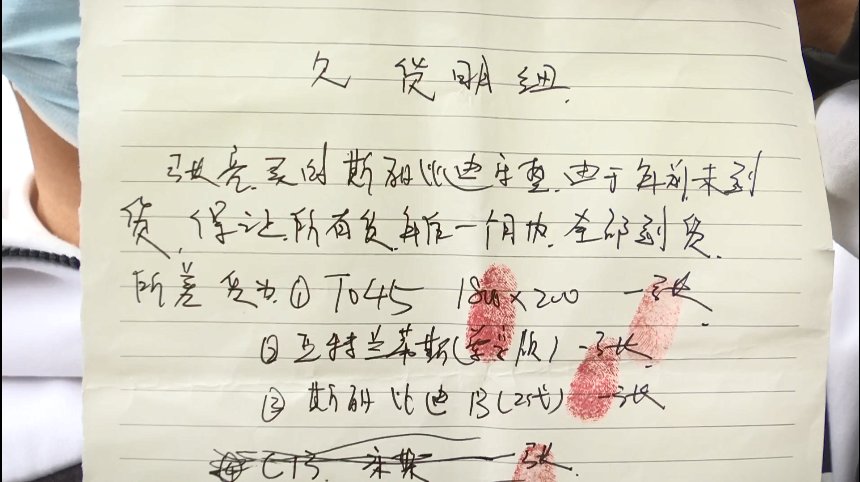 欠 货明细
张亮买的斯酣比迪床垫.由于年前未到
货,保证所有货.年后一个月内.全部到货.
所差货为①T045 180×200 一张.
②亚特兰蒂斯(尊享版)一张
③斯酣比迪13(25代)一张
④C13. 床架 一张